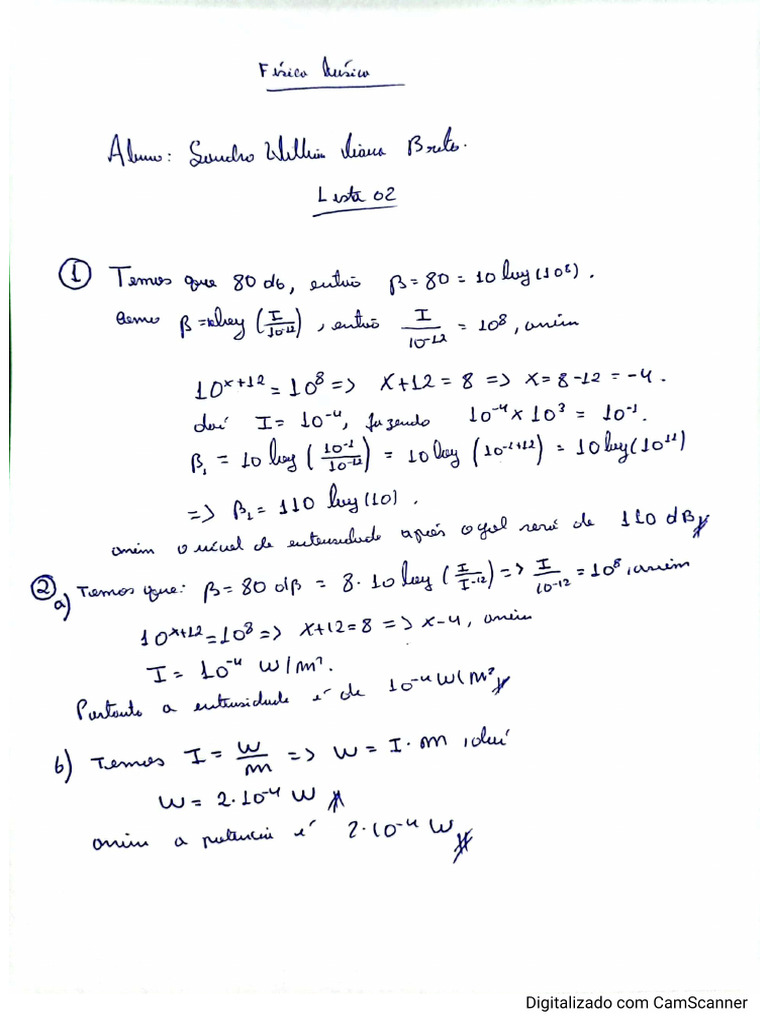 Física Música
Aluno: Willian Viana Brito.
Lista 02
① Temos que 80 db, então β = 80 = 10 log(10⁸).
Como β = log (I/10⁻¹²), então I/10⁻¹² = 10⁸, assim
10ˣ⁺¹² = 10⁸ => x+12 = 8 => x = 8-12 = -4.
daí I = 10⁻⁴, fazendo 10⁻⁴ x 10³ = 10⁻¹.
β₁ = 10 log (10⁻¹/10⁻¹²) = 10 log (10⁻¹⁺¹²) = 10 log(10¹¹)
=> β₁ = 110 log(10).
assim o nível de intensidade após o gol será de 110 dB//
② a) Temos que: β = 80 dβ = 8·10 log (I/I⁻¹²) => I/10⁻¹² = 10⁸, assim
10ˣ⁺¹² = 10⁸ => x+12 = 8 => x-4, assim
I = 10⁻⁴ W/m².
Portanto a intensidade é de 10⁻⁴ W/m²//
b) Temos I = W/m => W = I·m, daí
W = 2·10⁻⁴ W //
assim a potencia é 2·10⁻⁴ W //
Digitalizado com CamScanner